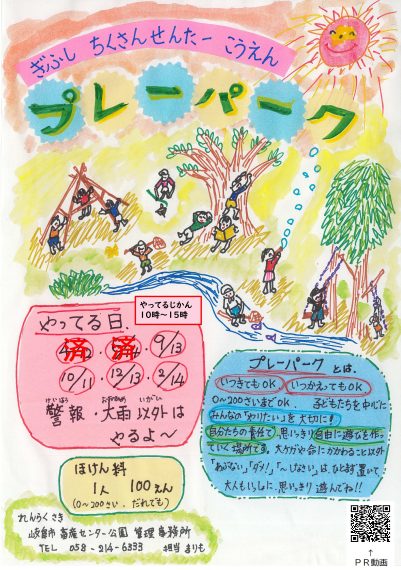 ぎふし ちくさんせんたー こうえん
プレーパーク
やってるじかん
10時～15時
やってる日.
済・済・9/13
10/11・12/13・2/14
けいほう おおあめ いがい
警報・大雨以外は
やるよ～
プレーパークとは、
いつきてもOK いつかえってもOK
0～200さいまでOK. 子どもたちを中心に
みんなの「やりたい」を大切に!
自分たちの責任で思いっきり自由に遊びを作っ
ていく場所です。大ケガや命にかかわること以外
「あぶない」「ダメ!」「～しなさい」は、ひとまず置いて
大人もいっしょに、思いっきり遊んでね!!
ほけん料
1人 100えん
(0～200さい. だれでも)
れんらくさき
岐阜市 畜産センター公園 管理事務所
TEL 058-214-6333 担当 まりも
↑
PR動画